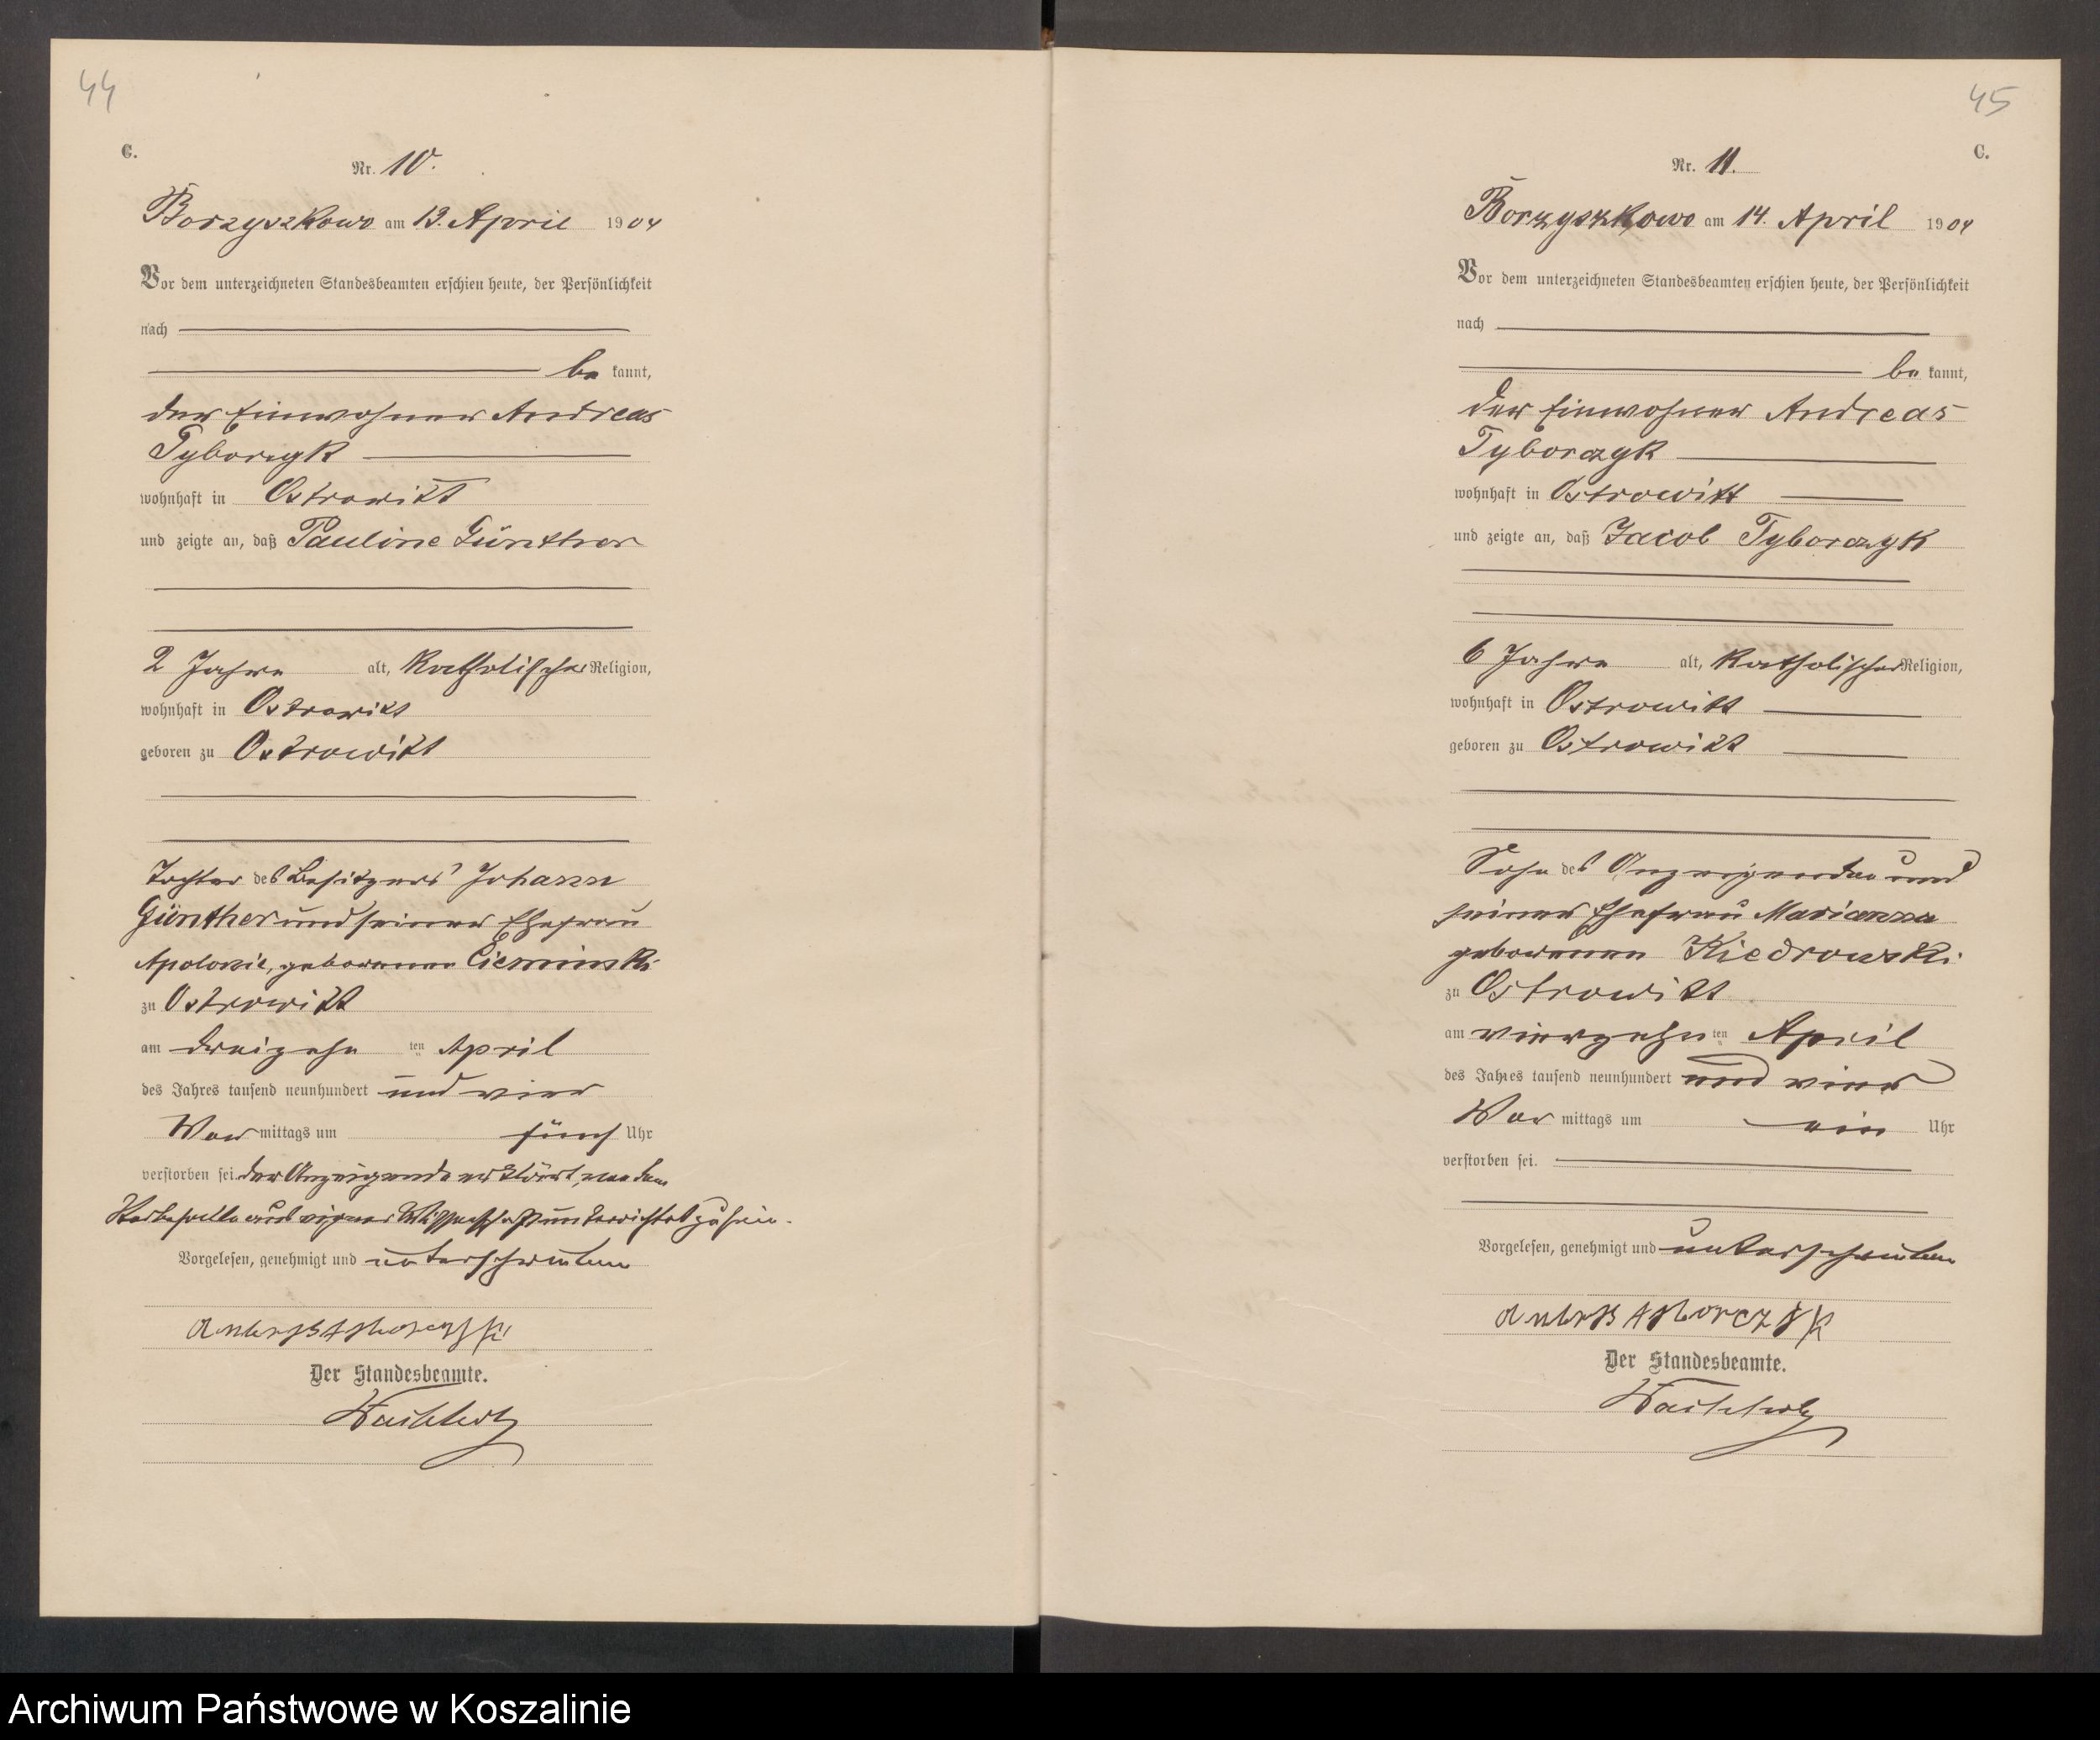 44
C.
Nr. 10.
Borzyszkowo am 13. April 1904
Vor dem unterzeichneten Standesbeamten erschien heute, der Persönlichkeit
nach
be kannt,
der Einwohner Andreas
Tyborczyk
wohnhaft in Ostrowitt
und zeigte an, daß Pauline Günther
2 Jahre alt, katholischer Religion,
wohnhaft in Ostrowitt
geboren zu Ostrowitt
Tochter des Besitzers Johann
Günther und seiner Ehefrau
Apolonie, geborenen Cieminski
zu Ostrowitt
am dreizehn ten April
des Jahres tausend neunhundert und vier
Vor mittags um fünf Uhr
verstorben sei. Der Anzeigende erklärt, von dem
Sterbefalle aus eigener Wissenschaft unterrichtet zu sein.
Vorgelesen, genehmigt und unterschrieben
Der Standesbeamte.
45
C.
Nr. 11.
Borzyszkowo am 14. April 1904
Vor dem unterzeichneten Standesbeamten erschien heute, der Persönlichkeit
nach
be kannt,
der Einwohner Andreas
Tyborczyk
wohnhaft in Ostrowitt
und zeigte an, daß Jacob Tyborczyk
6 Jahre alt, katholischer Religion,
wohnhaft in Ostrowitt
geboren zu Ostrowitt
Sohn des Anzeigenden und
seiner Ehefrau Marianna
geborenen Kiedrowski
zu Ostrowitt
am vierzehn ten April
des Jahres tausend neunhundert und vier
Vor mittags um ein Uhr
verstorben sei.
Vorgelesen, genehmigt und unterschrieben
Der Standesbeamte.
Archiwum Państwowe w Koszalinie